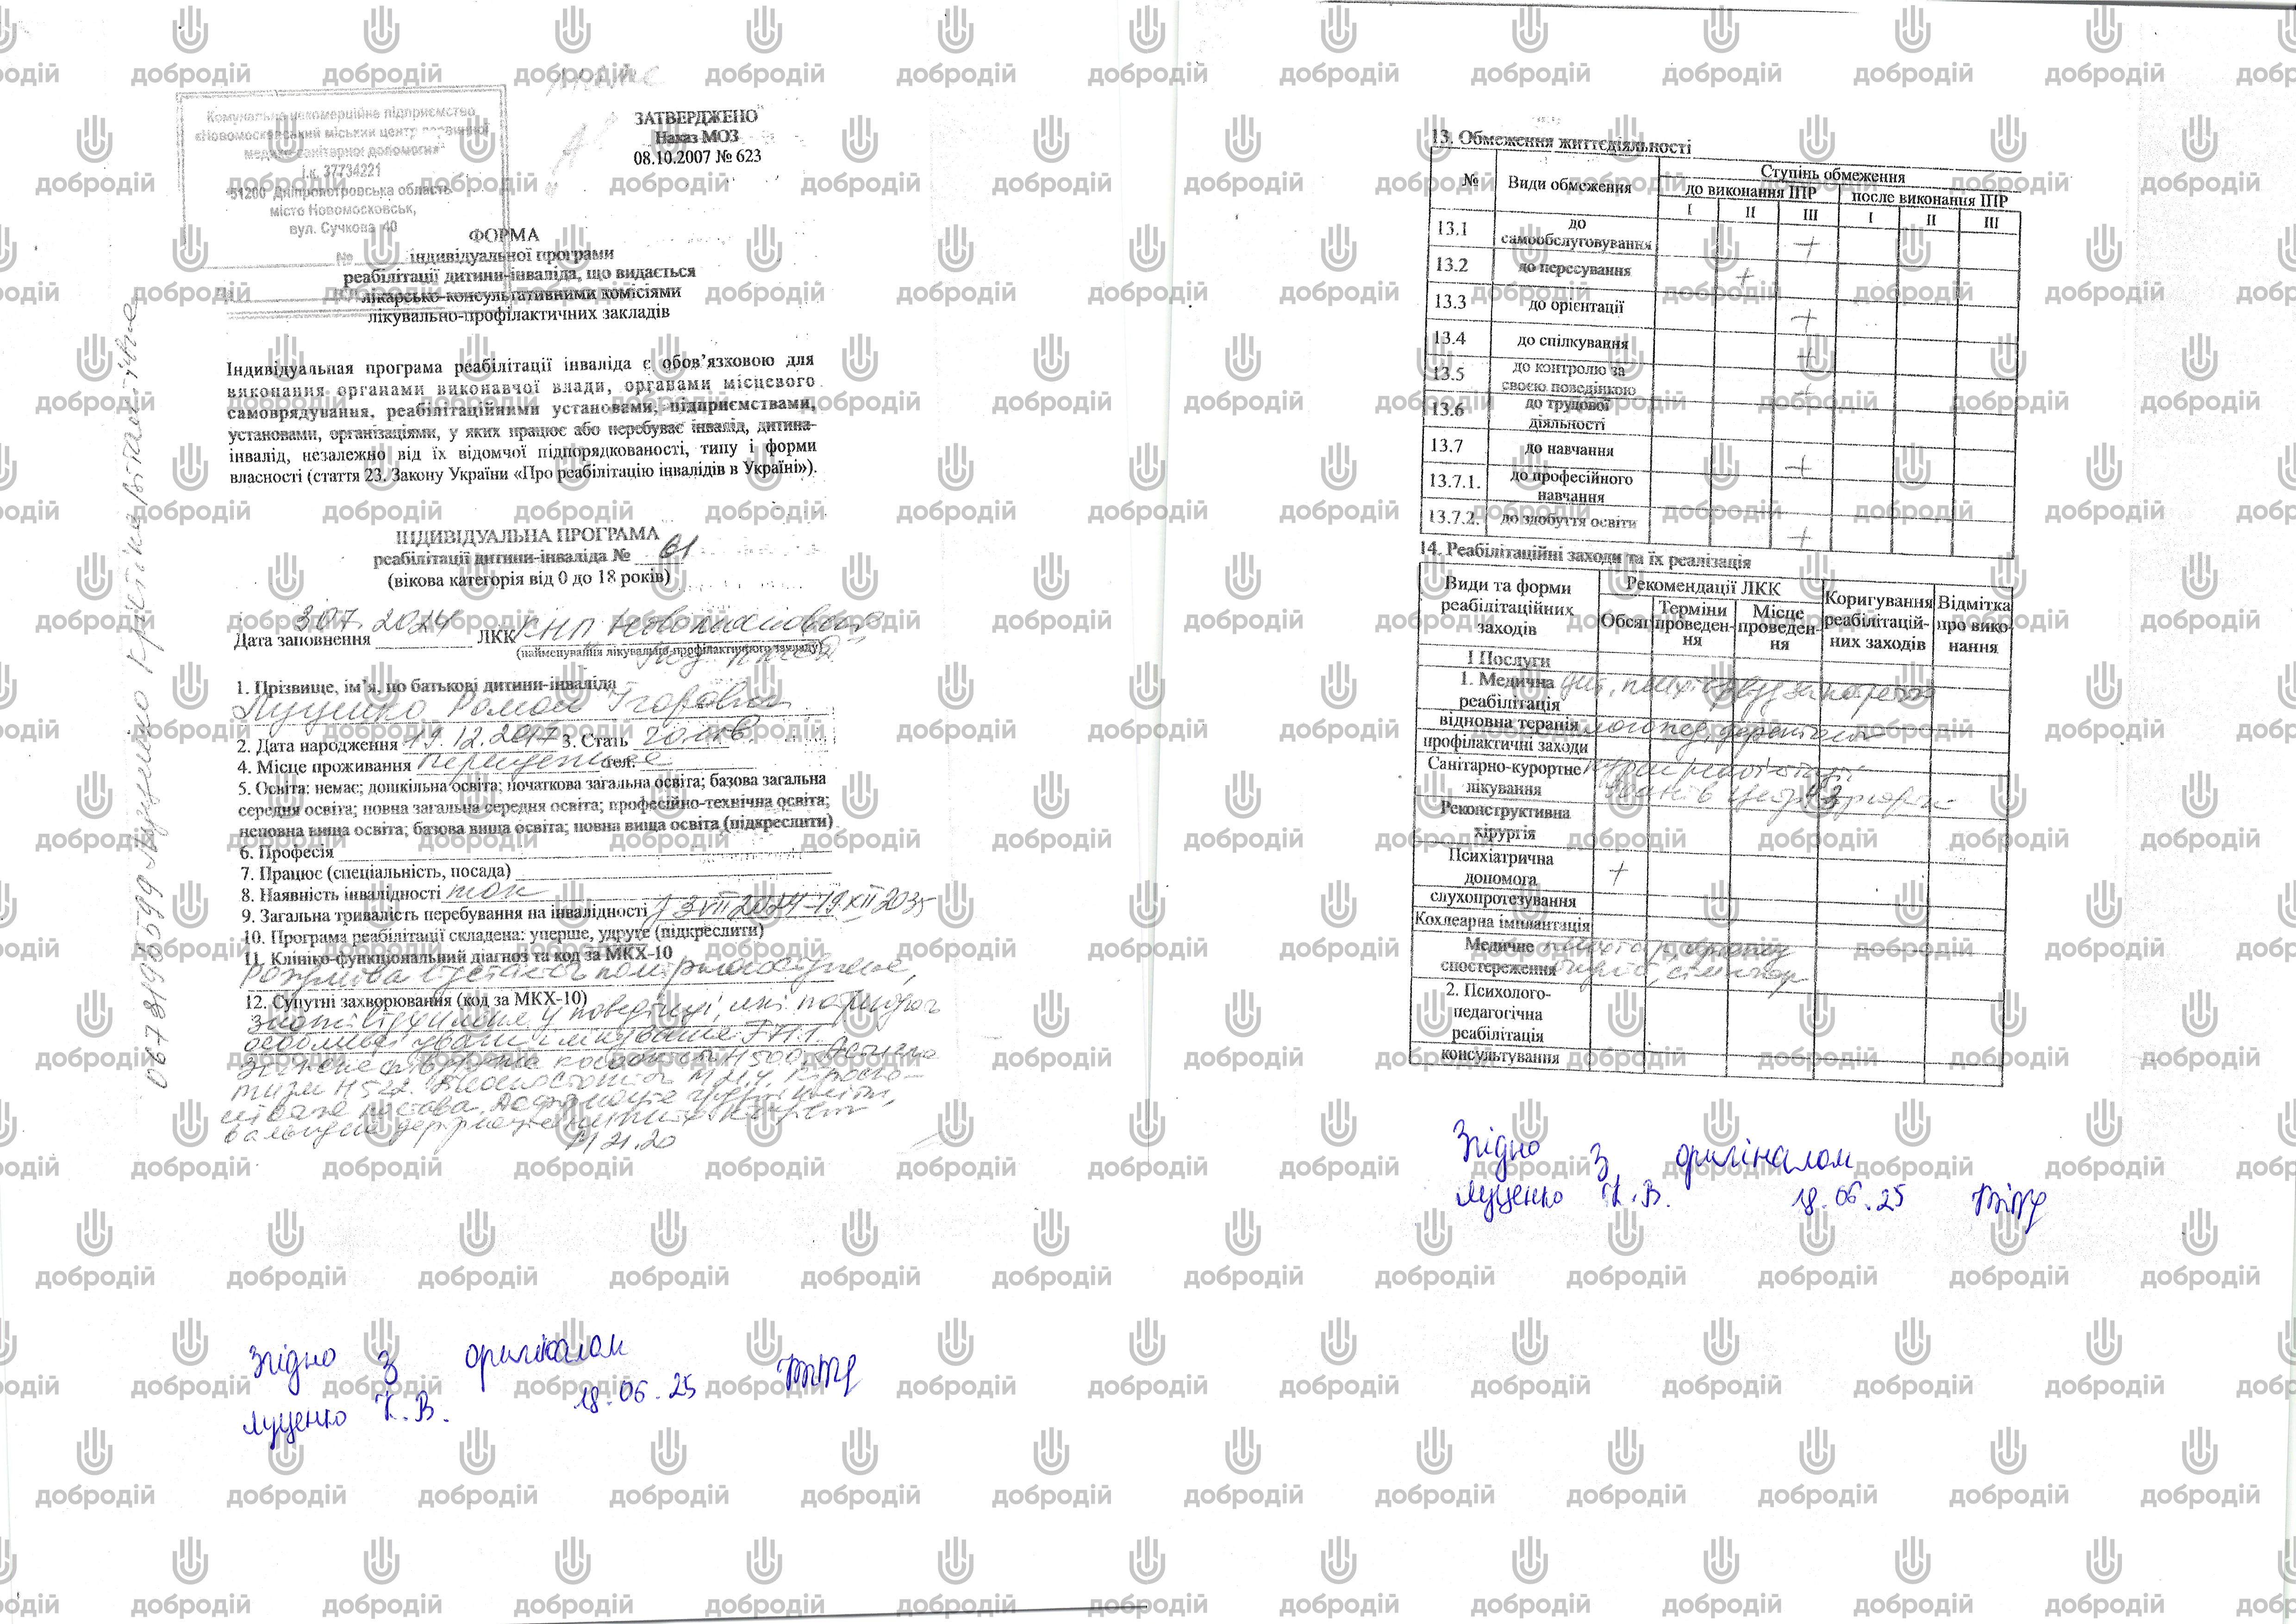 Комунальне некомерційне підприємство
«Новомосковський міський центр первинної
медико-санітарної допомоги»
і.к. 37734221
51200 Дніпропетровська область
місто Новомосковськ,
вул. Сучкова 40
№
ЗАТВЕРДЖЕНО
Наказ МОЗ
08.10.2007 № 623
ФОРМА
індивідуальної програми
реабілітації дитини-інваліда, що видається
лікарсько-консультативними комісіями
лікувально-профілактичних закладів
Індивідуальная програма реабілітації інваліда є обов’язковою для
виконання органами виконавчої влади, органами місцевого
самоврядування, реабілітаційними установами, підприємствами,
установами, організаціями, у яких працює або перебуває інвалід, дитина-
інвалід, незалежно від їх відомчої підпорядкованості, типу і форми
власності (стаття 23. Закону України «Про реабілітацію інвалідів в Україні»).
ІНДИВІДУАЛЬНА ПРОГРАМА
реабілітації дитини-інваліда № 61
(вікова категорія від 0 до 18 років)
Дата заповнення 3.07.2024 ЛКК КНП
(найменування лікувально-профілактичного закладу)
1. Прізвище, ім’я, по батькові дитини-інваліда
Луценко Роман Ігорович
2. Дата народження 19.12.2017 3. Стать чолов
4. Місце проживання тел.
5. Освіта: немає; дошкільна освіта; початкова загальна освіта; базова загальна
середня освіта; повна загальна середня освіта; професійно-технічна освіта;
неповна вища освіта; базова вища освіта; повна вища освіта (підкреслити)
6. Професія
7. Працює (спеціальність, посада)
8. Наявність інвалідності так
9. Загальна тривалість перебування на інвалідності з 3 VII 2024-19 XII 2035
10. Програма реабілітації складена: уперше, удруге (підкреслити)
11. Клініко-функціональний діагноз та код за МКХ-10
Розумова відсталість помірного ступеня,
12. Супутні захворювання (код за МКХ-10)
значні відхилення у поведінці, які потребують
особливої уваги і лікування F71.1.
H50.0. Астигма-
тизм H52.2.
постава.
M21.20
0678198599 Луценко Крістіна Віталіївна
Згідно з оригіналом
Луценко К.В. 18.06.25
13. Обмеження життєдіяльності
№ Види обмеження Ступінь обмеження
до виконання ІПР после виконання ІПР
I II III I II III
13.1 до самообслуговування +
13.2 до пересування +
13.3 до орієнтації +
13.4 до спілкування +
13.5 до контролю за своєю поведінкою +
13.6 до трудової діяльності
13.7 до навчання +
13.7.1. до професійного навчання
13.7.2. до здобуття освіти +
14. Реабілітаційні заходи та їх реалізація
Види та форми реабілітаційних заходів Рекомендації ЛКК Коригування реабілітацій-них заходів Відмітка про вико-нання
Обсяг Терміни проведен-ня Місце проведен-ня
I Послуги
1. Медична реабілітація
відновна терапія
профілактичні заходи
Санітарно-курортне лікування
Реконструктивна хірургія
Психіатрична допомога +
слухопротезування
Кохлеарна імплантація
Медичне спостереження
2. Психолого-педагогічна реабілітація
консультування
Згідно з оригіналом
Луценко К.В. 18.06.25
добродій